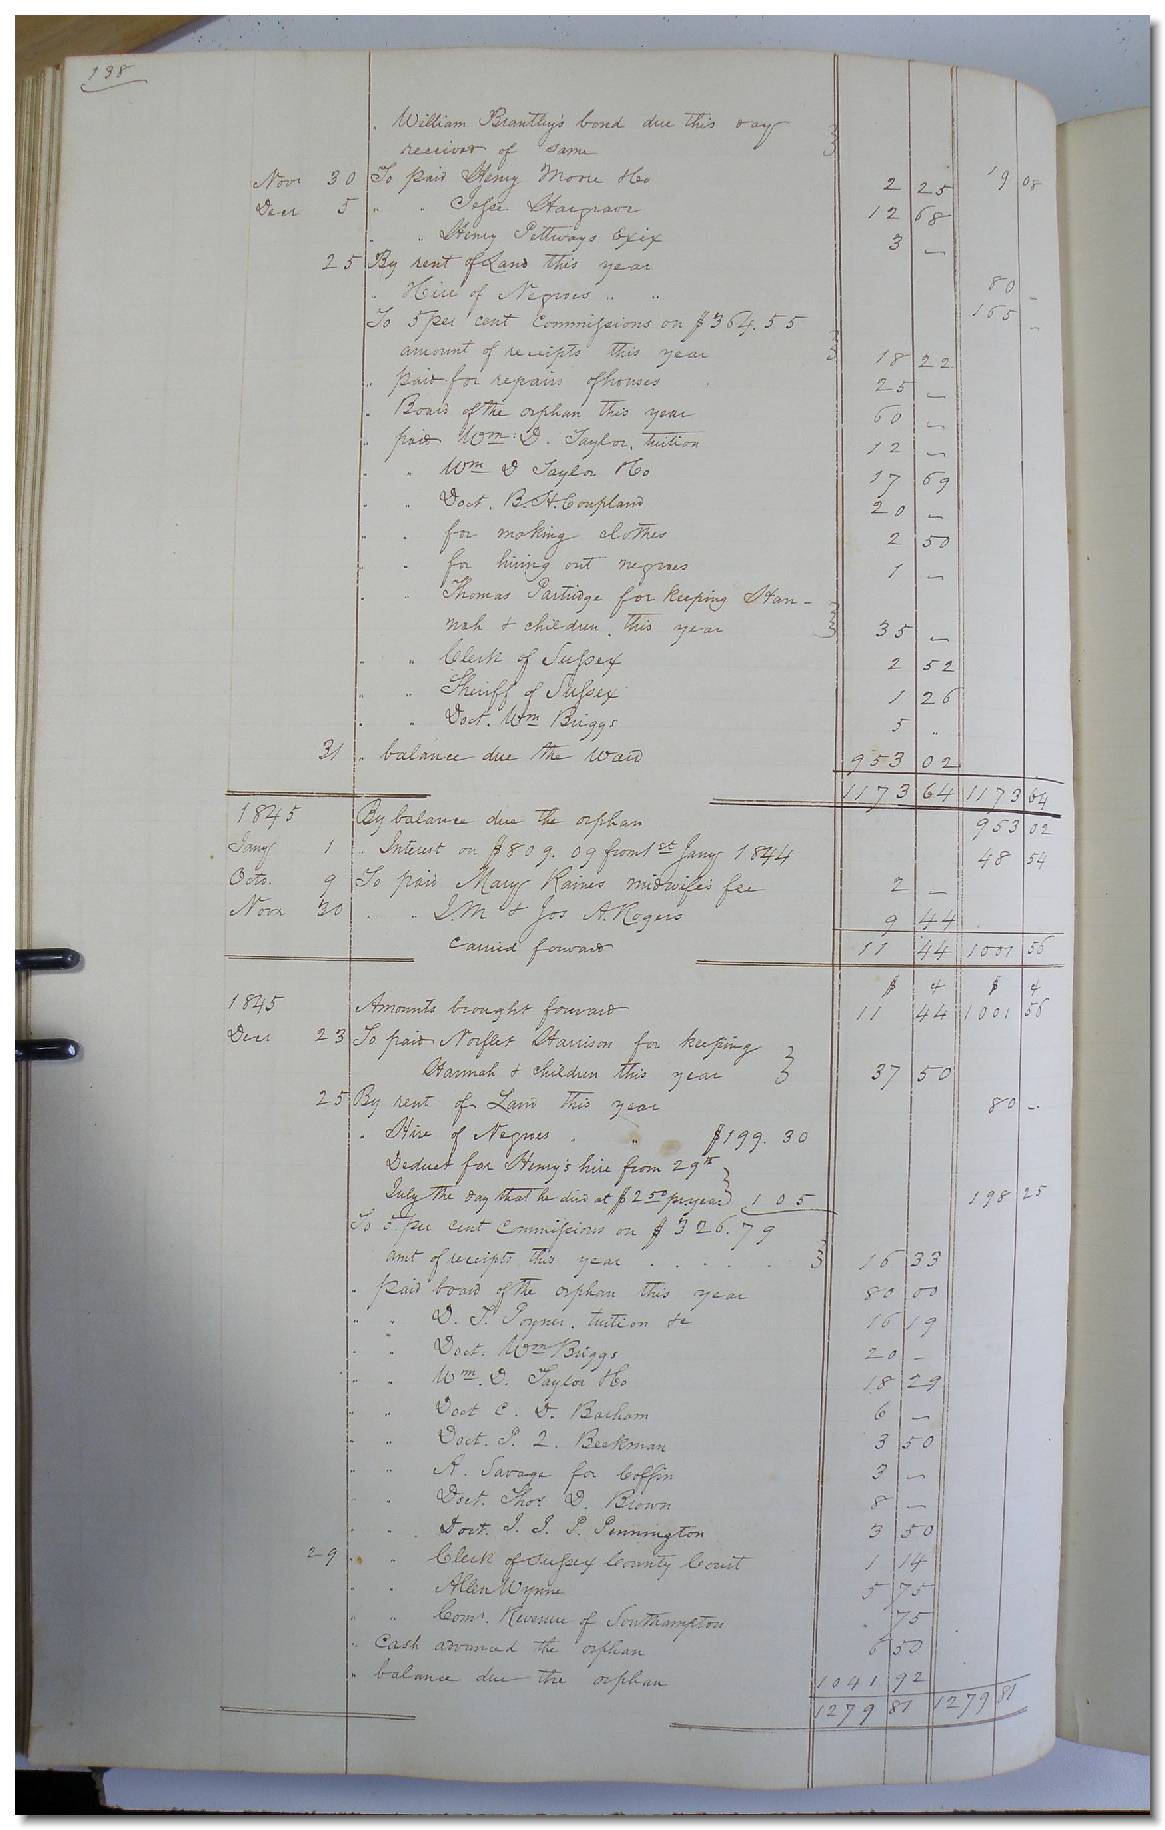 198
" William Brantley's bond due this day
received of same 19 08
Novr 30 To paid Henry Moore &Co 2 25
Decr 5 " " Jesse Hargrave 12 68
" " Henry Pettways Exix 3 —
25 By rent of Land this year 80 —
" Hire of Negroes " " 165 —
To 5 per cent Commissions on $364.55
amount of receipts this year 18 22
" paid for repairs of houses 25 —
" Board of the orphan this year 60 —
" paid Wm: D. Taylor, tuition 12 —
" " Wm D Taylor &Co 17 69
" " Doct. B.H. Coupland 20 —
" " for making clothes 2 50
" " for hiring out negroes 1 —
" " Thomas Partridge for keeping Han-
nah & children this year 35 —
" " Clerk of Sussex 2 52
" " Sheriff of Sussex 1 26
" " Doct. Wm Briggs 5 "
31 " balance due the Ward 953 02
1173 64 1173 64
1845 By balance due the orphan 953 02
Jany 1 " Interest on $809.09 from 1st Jany 1844 48 54
Octo. 9 To paid Mary Raines midwife's fee 2 —
Novr 30 " " & Jos A. Rogers 9 44
Carried forward 11 44 1001 56
$ ¢ $ ¢
1845 Amounts brought forward 11 44 1001 56
Decr 23 To paid Norflet Harrison for keeping
Hannah & children this year 37 50
25 By rent of Land this year 80 —
" Hire of Negroes " " $199.30
Deduct for Henry's hire from 29th
July the day that he died at $2 50 pr year 1 05 198 25
To 5 per cent Commissions on $326.79
amt of receipts this year . . . . . . 16 33
" paid board of the orphan this year 80 00
" " D. T. Poyner, tuition &c 16 19
" " Doct. Wm Briggs 20 —
" " Wm. D. Taylor &Co 18 29
" " Doct C. D. Barham 6 —
" " Doct. P. Beekman 3 50
" " A. Savage for Coffin 3 —
" " Doct. Thos D. Brown 8 —
" " Doct. J. J. P. Pennington 3 50
29 " " Clerk of Sussex County Court 1 14
" " Allen Wynne 5 75
" " Comr. Revenue of Southampton " 75
" Cash advanced the orphan 6 50
" balance due the orphan 1041 92
1279 81 1279 81